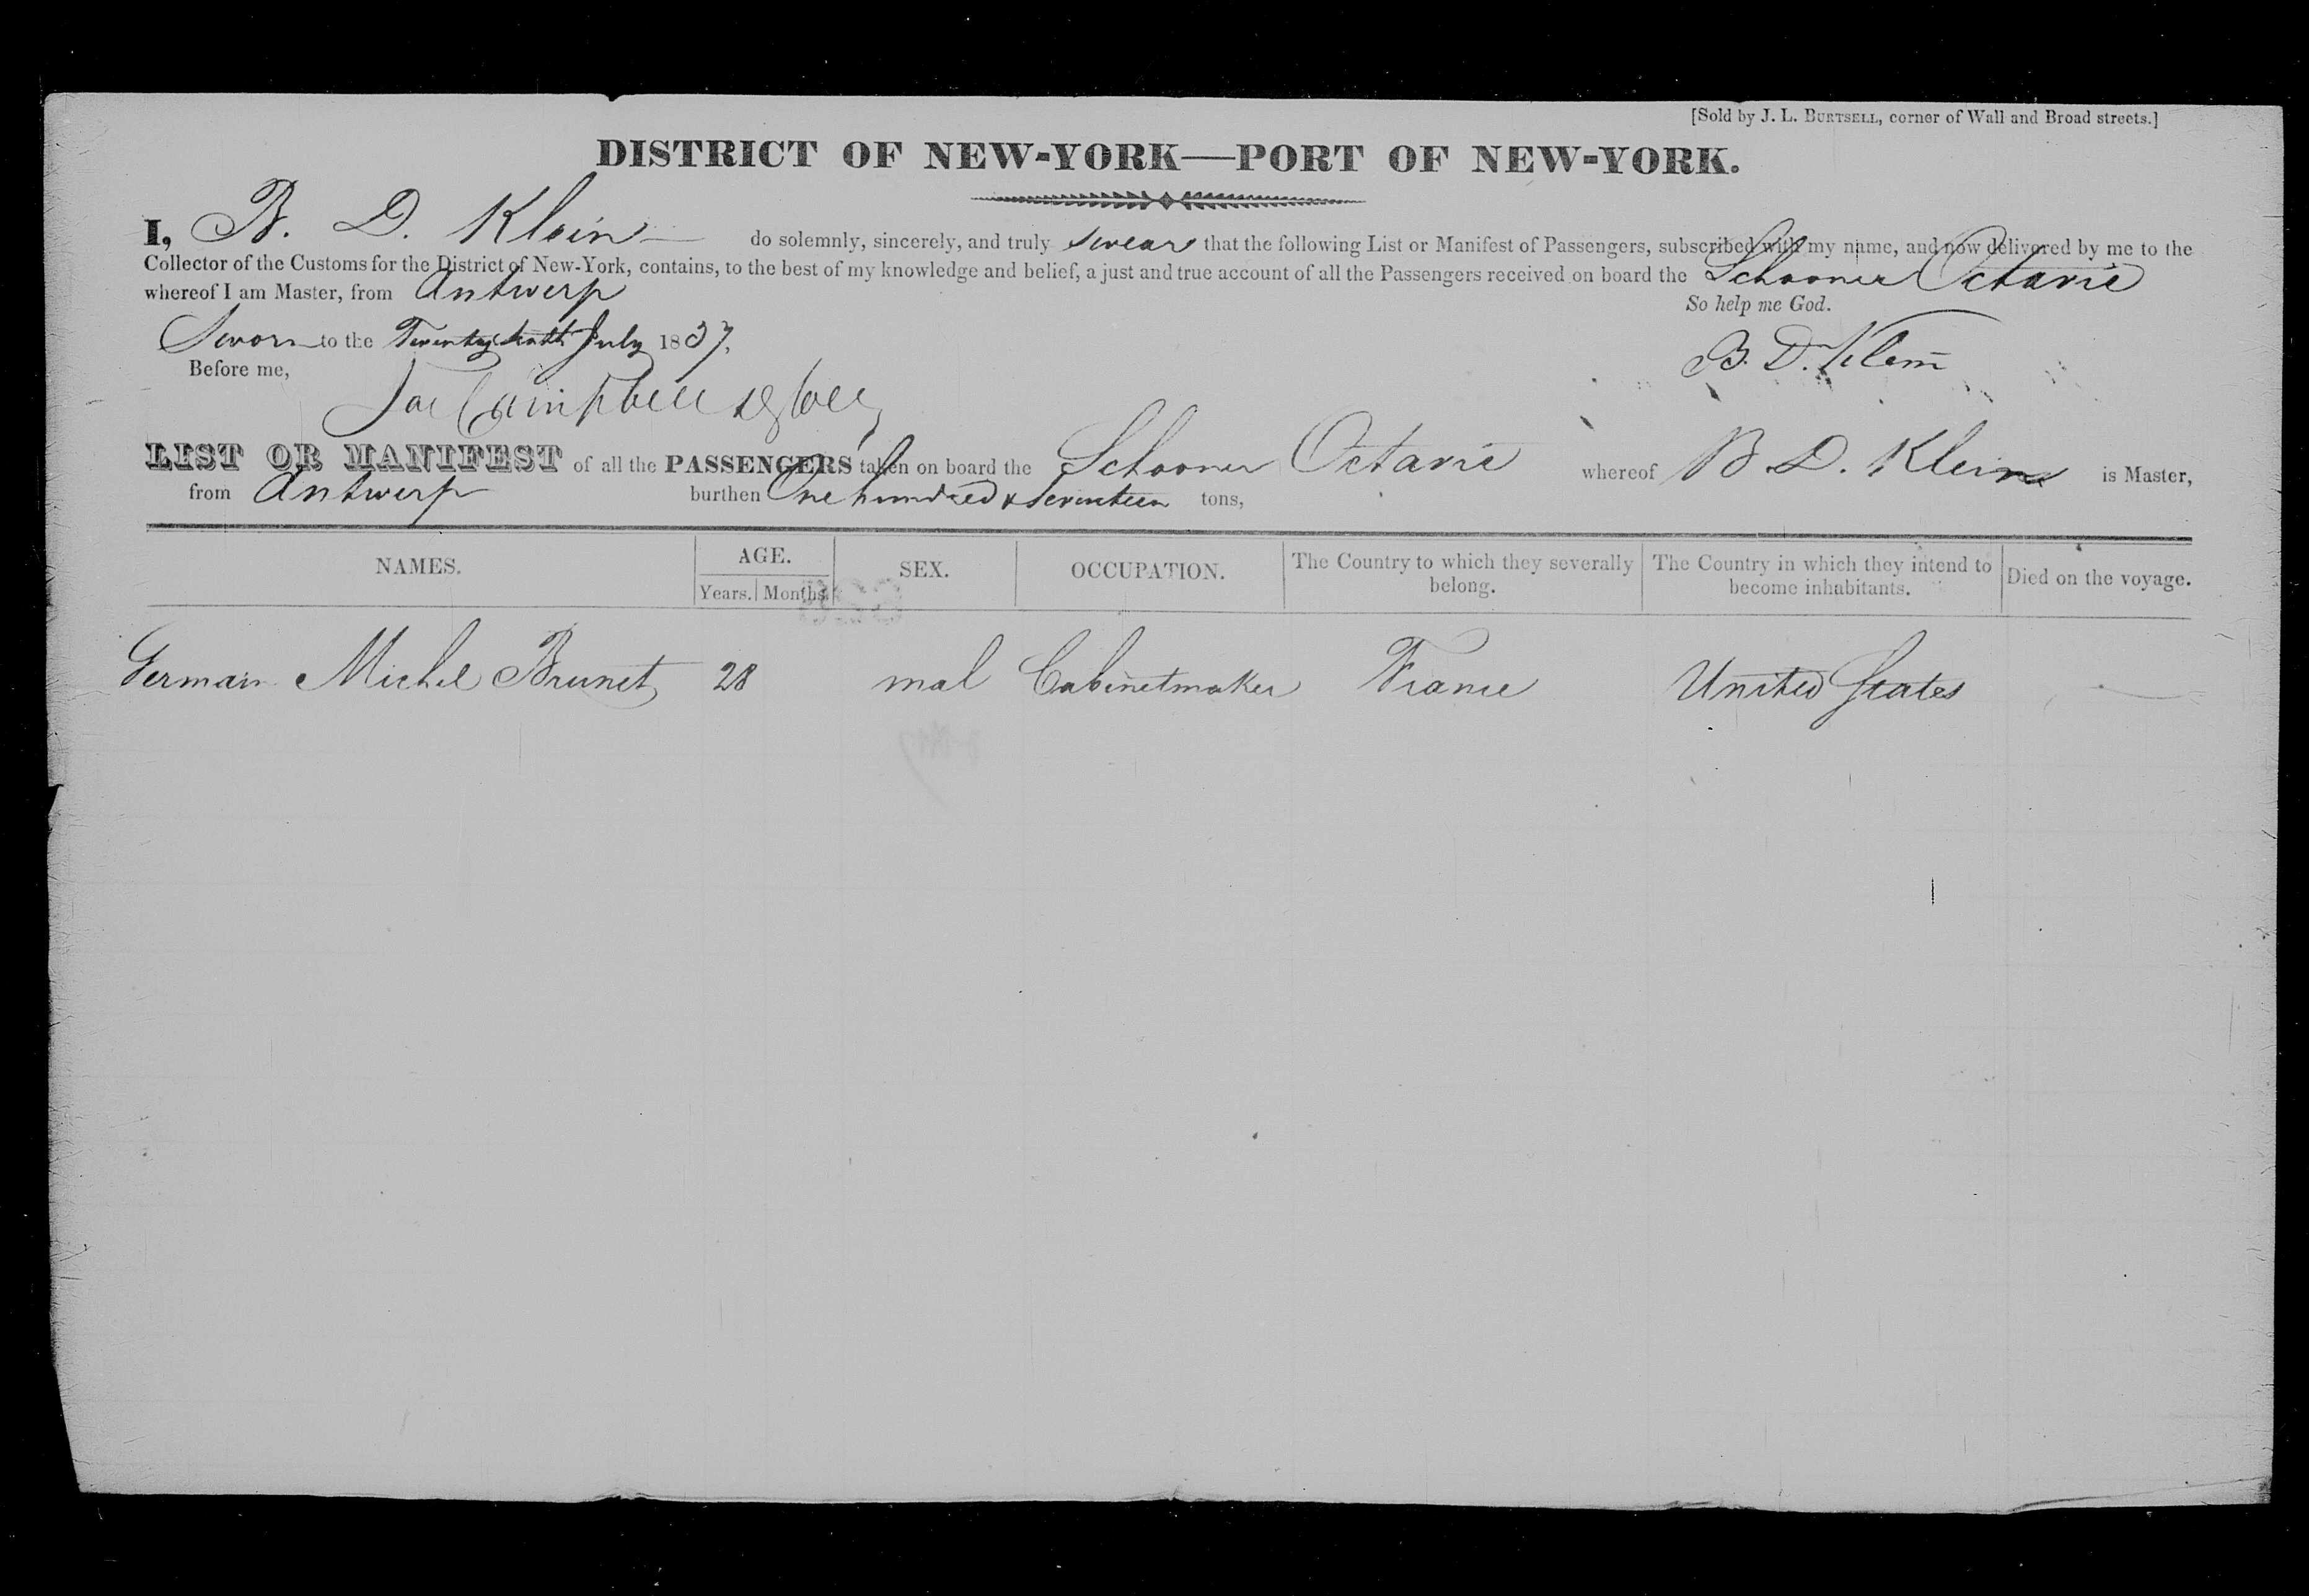 [Sold by J. L. BURTSELL, corner of Wall and Broad streets.]
DISTRICT OF NEW-YORK—PORT OF NEW-YORK.
I, B. D. Klein do solemnly, sincerely, and truly swear that the following List or Manifest of Passengers, subscribed with my name, and now delivered by me to the
Collector of the Customs for the District of New-York, contains, to the best of my knowledge and belief, a just and true account of all the Passengers received on board the Schooner Octavie
whereof I am Master, from Antwerp
So help me God.
Sworn to the Twenty July 1837,
B. D. Klein
Before me,
Campbell
LIST OR MANIFEST of all the PASSENGERS taken on board the Schooner Octavie whereof B. D. Klein is Master,
from Antwerp burthen One hundred & Seventeen tons,
NAMES. AGE. SEX. OCCUPATION. The Country to which they severally belong. The Country in which they intend to become inhabitants. Died on the voyage.
Years. Months.
German Michel Brunet 28 mal Cabinetmaker France United States